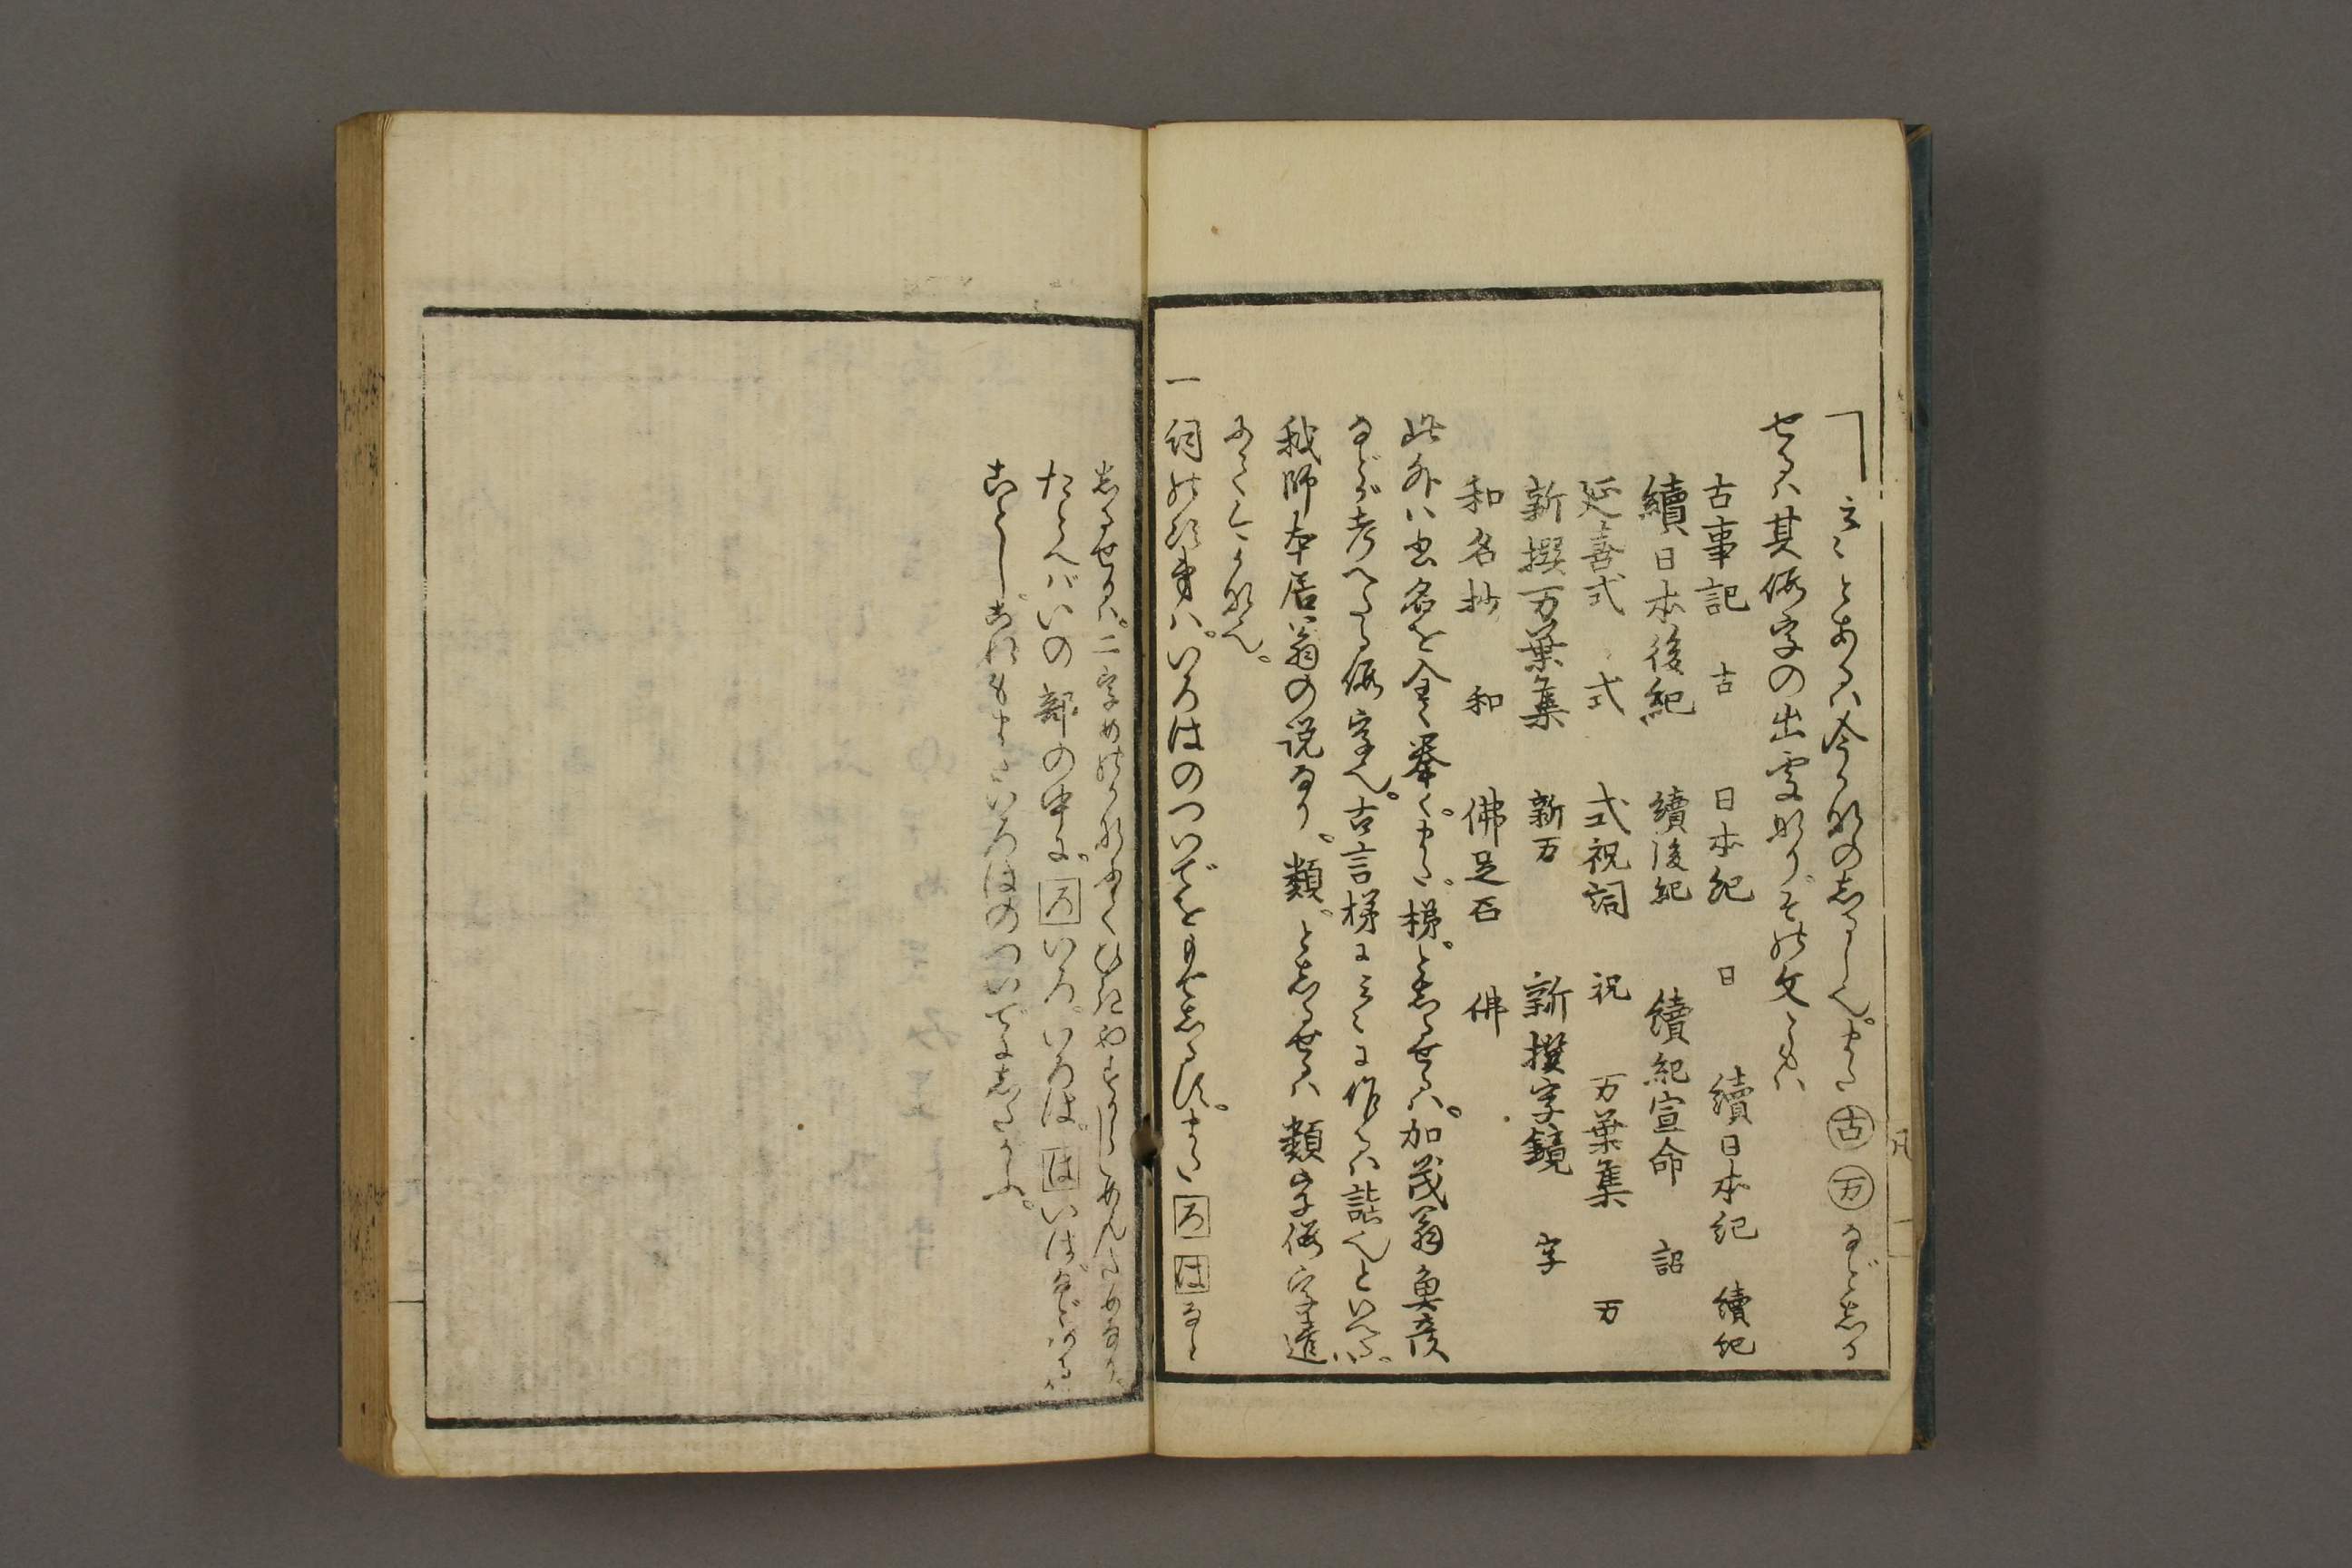 ﹁云々とあるハ今のかなのしるし也。また㊎古 万などしる
せるハ其仮字の出處なりその文ともハ
古事記 古 日本紀 日 續日本紀 續紀
續日本後紀 續後紀 續紀宣命 詔
延喜式 式 式祝詞 祝 万葉集 万
新撰万葉集 新万 新撰字鏡 字
和名抄 和 佛足石 佛
此外ハ書名を全く挙く。また。梯。としるせるハ。加茂翁魚彦
などが考へたる仮字也。古言梯にミくに作るハ誤也といへり。
我師本居翁の説なり。類。としるせるハ類字仮字遣
一 詞の次第ハ。いろはのついでをもてしるす。また ろ は など
しるせるハ。二字めのかなにてひきやすからしめんためなり。
たとへバいの部の中に。ろ いろ。いろは。は いはなどある
ごとし。これもまたいろはのついでにしたがふ。
凡